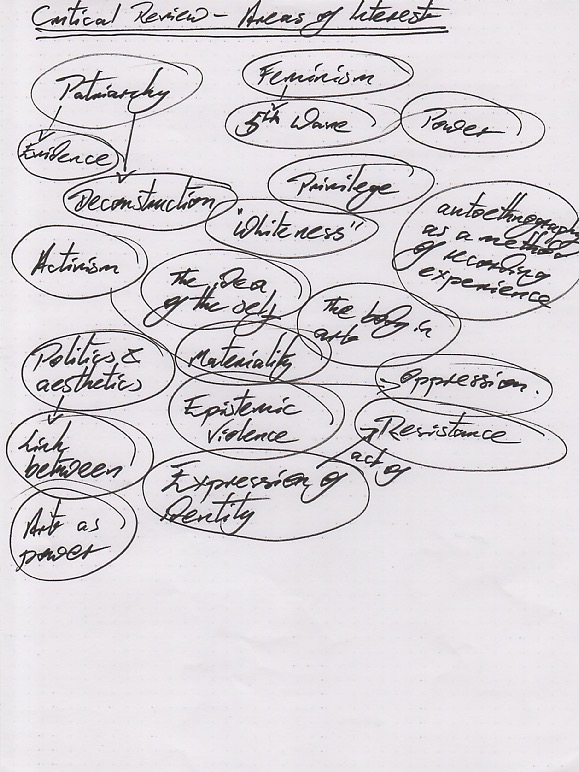 Critical Review - Areas of Interest
Patriarchy
Feminism
5th Wave
Power
Evidence
Deconstruction
Privilege
"Whiteness"
autoethnography
as a method
of recording
experience
Activism
The idea
of the self
The body in
art
Materiality
Politics &
aesthetics
Oppression.
Epistemic
violence
Resistance
act of
Link
between
Expression of
identity
Art as
power